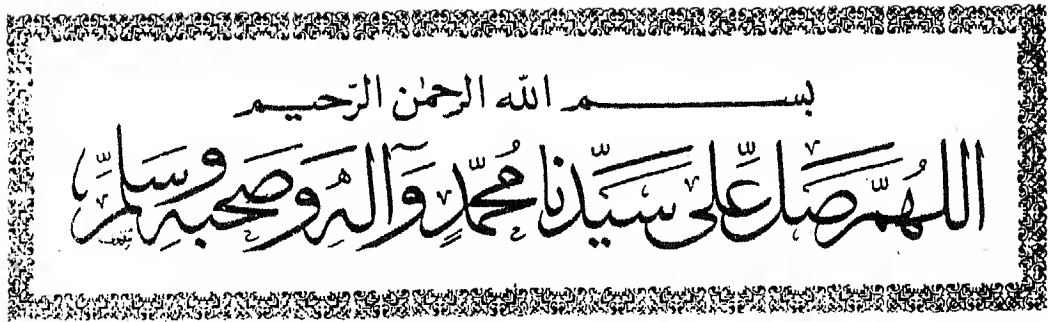 بسم الله الرحمٰن الرّحيم
اللهُمَّ صَلِّ عَلى سَيِّدنا مُحمّدٍ وَآلهِ وَصَحبهِ وَسَلِّم